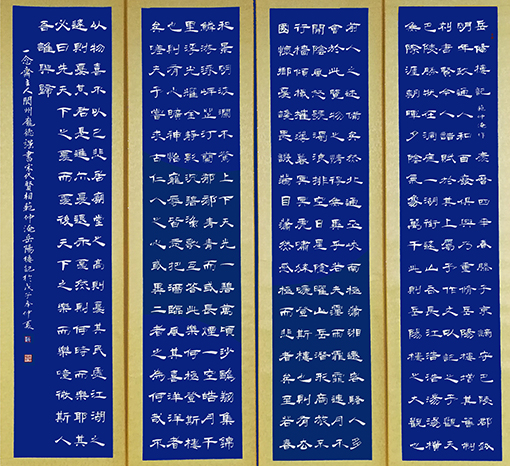 岳陽樓記 范仲淹作 慶曆四年春滕子京謫守巴陵郡越
明年政通人和百廢具興乃重修岳陽樓增其舊制
刻唐賢今人詩賦於其上屬予作文以記之予觀夫
巴陵勝狀在洞庭一湖銜遠山吞長江浩浩湯湯橫
無際涯朝暉夕陰氣象萬千此則岳陽樓之大觀也
前人之述備矣然則北通巫峽南極瀟湘遷客騷人多
會於此覽物之情得無異乎若夫霪雨霏霏連月不
開陰風怒號濁浪排空日星隱曜山岳潛形商旅不
行檣傾楫摧薄暮冥冥虎嘯猿啼登斯樓也則有去
國懷鄉憂讒畏譏滿目蕭然感極而悲者矣至若春
和景明波瀾不驚上下天光一碧萬頃沙鷗翔集錦
鱗游泳岸芷汀蘭郁郁青青而或長煙一空皓月千
里浮光躍金靜影沉璧漁歌互答此樂何極登斯樓
也則有心曠神怡寵辱皆忘把酒臨風其喜洋洋者
矣嗟夫予嘗求古仁人之心或異二者之為何哉不
以物喜不以己悲居廟堂之高則憂其民處江湖之
遠則憂其君是進亦憂退亦憂然則何時而樂耶其
必曰先天下之憂而憂後天下之樂而樂噫微斯人
吾誰與歸
一念齋主人閬州龐德漢書宋代賢相范仲淹岳陽樓記於戊子年仲夏